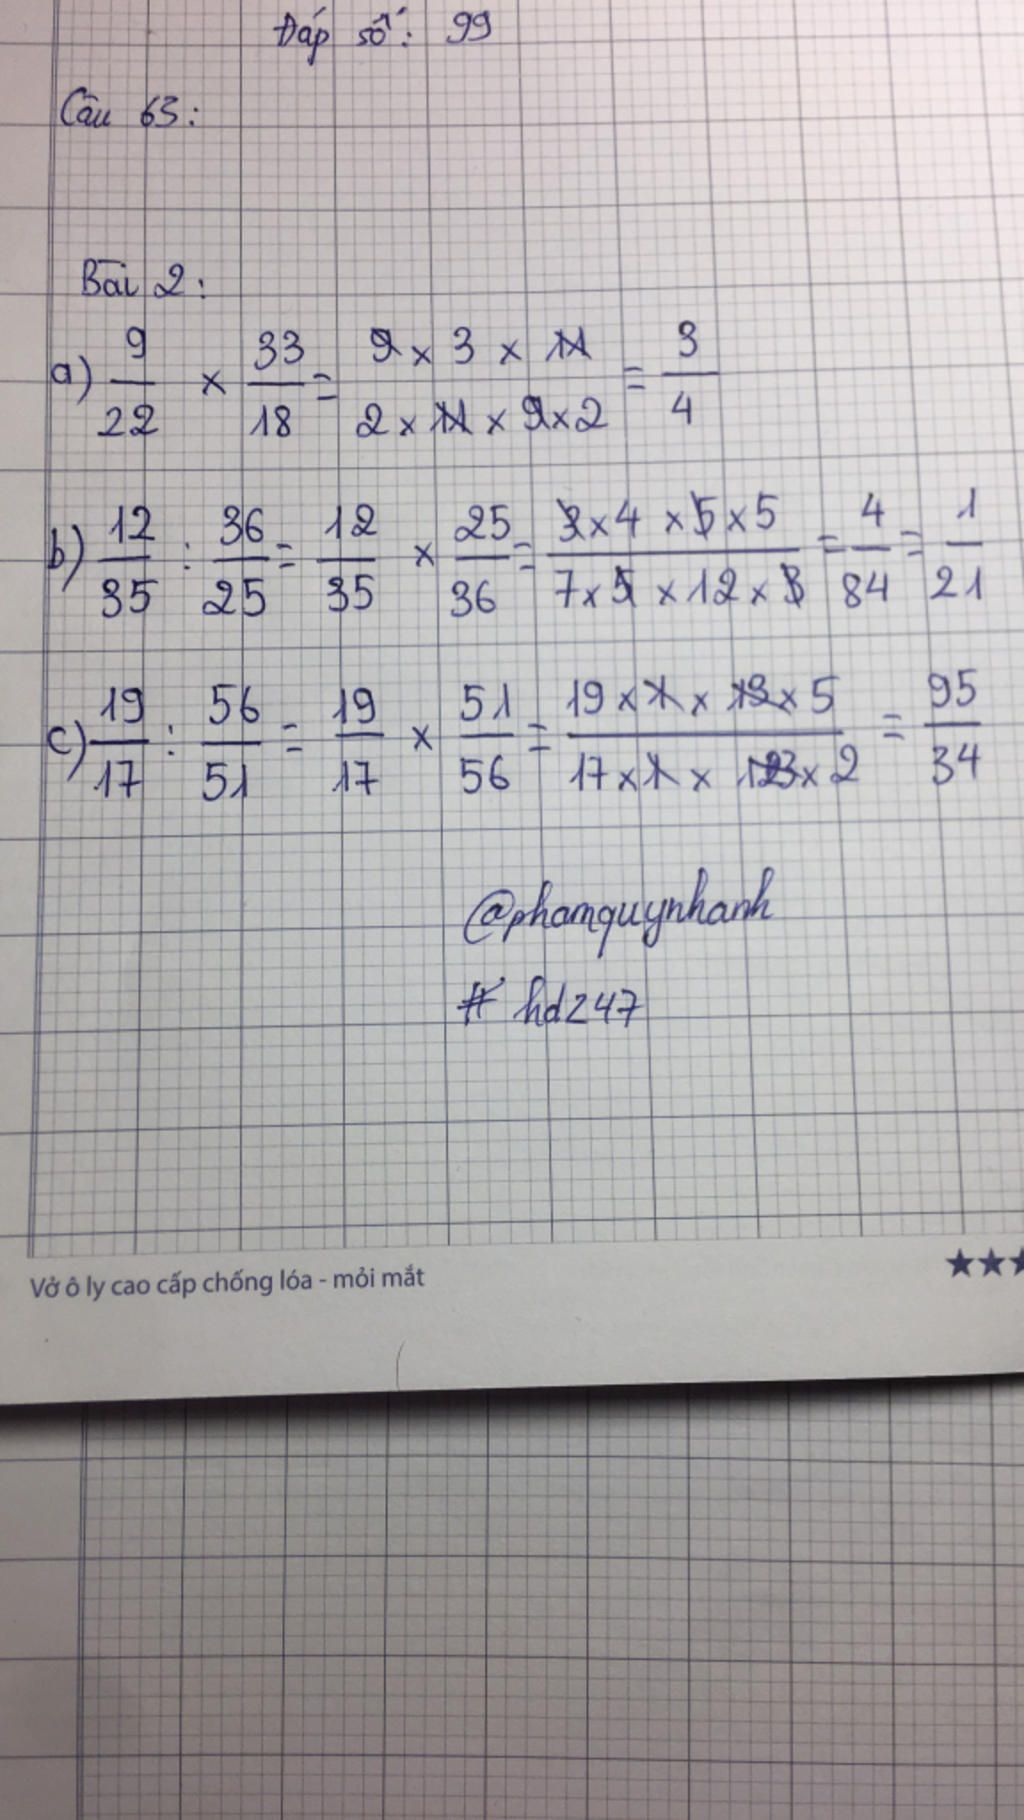 Đáp số: 99
Câu 63:
Bài 2:
a) 9/22 × 33/18 = 9 × 3 × 11 / 2 × 11 × 9 × 2 = 3/4
b) 12/35 : 36/25 = 12/35 × 25/36 = 3 × 4 × 5 × 5 / 7 × 5 × 12 × 3 = 4/84 = 1/21
c) 19/17 : 56/51 = 19/17 × 51/56 = 19 × 1 × × 5 / 17 × 1 × × 2 = 95/34
@phamquynhanh
# hd247
Vở ô ly cao cấp chống lóa - mỏi mắt